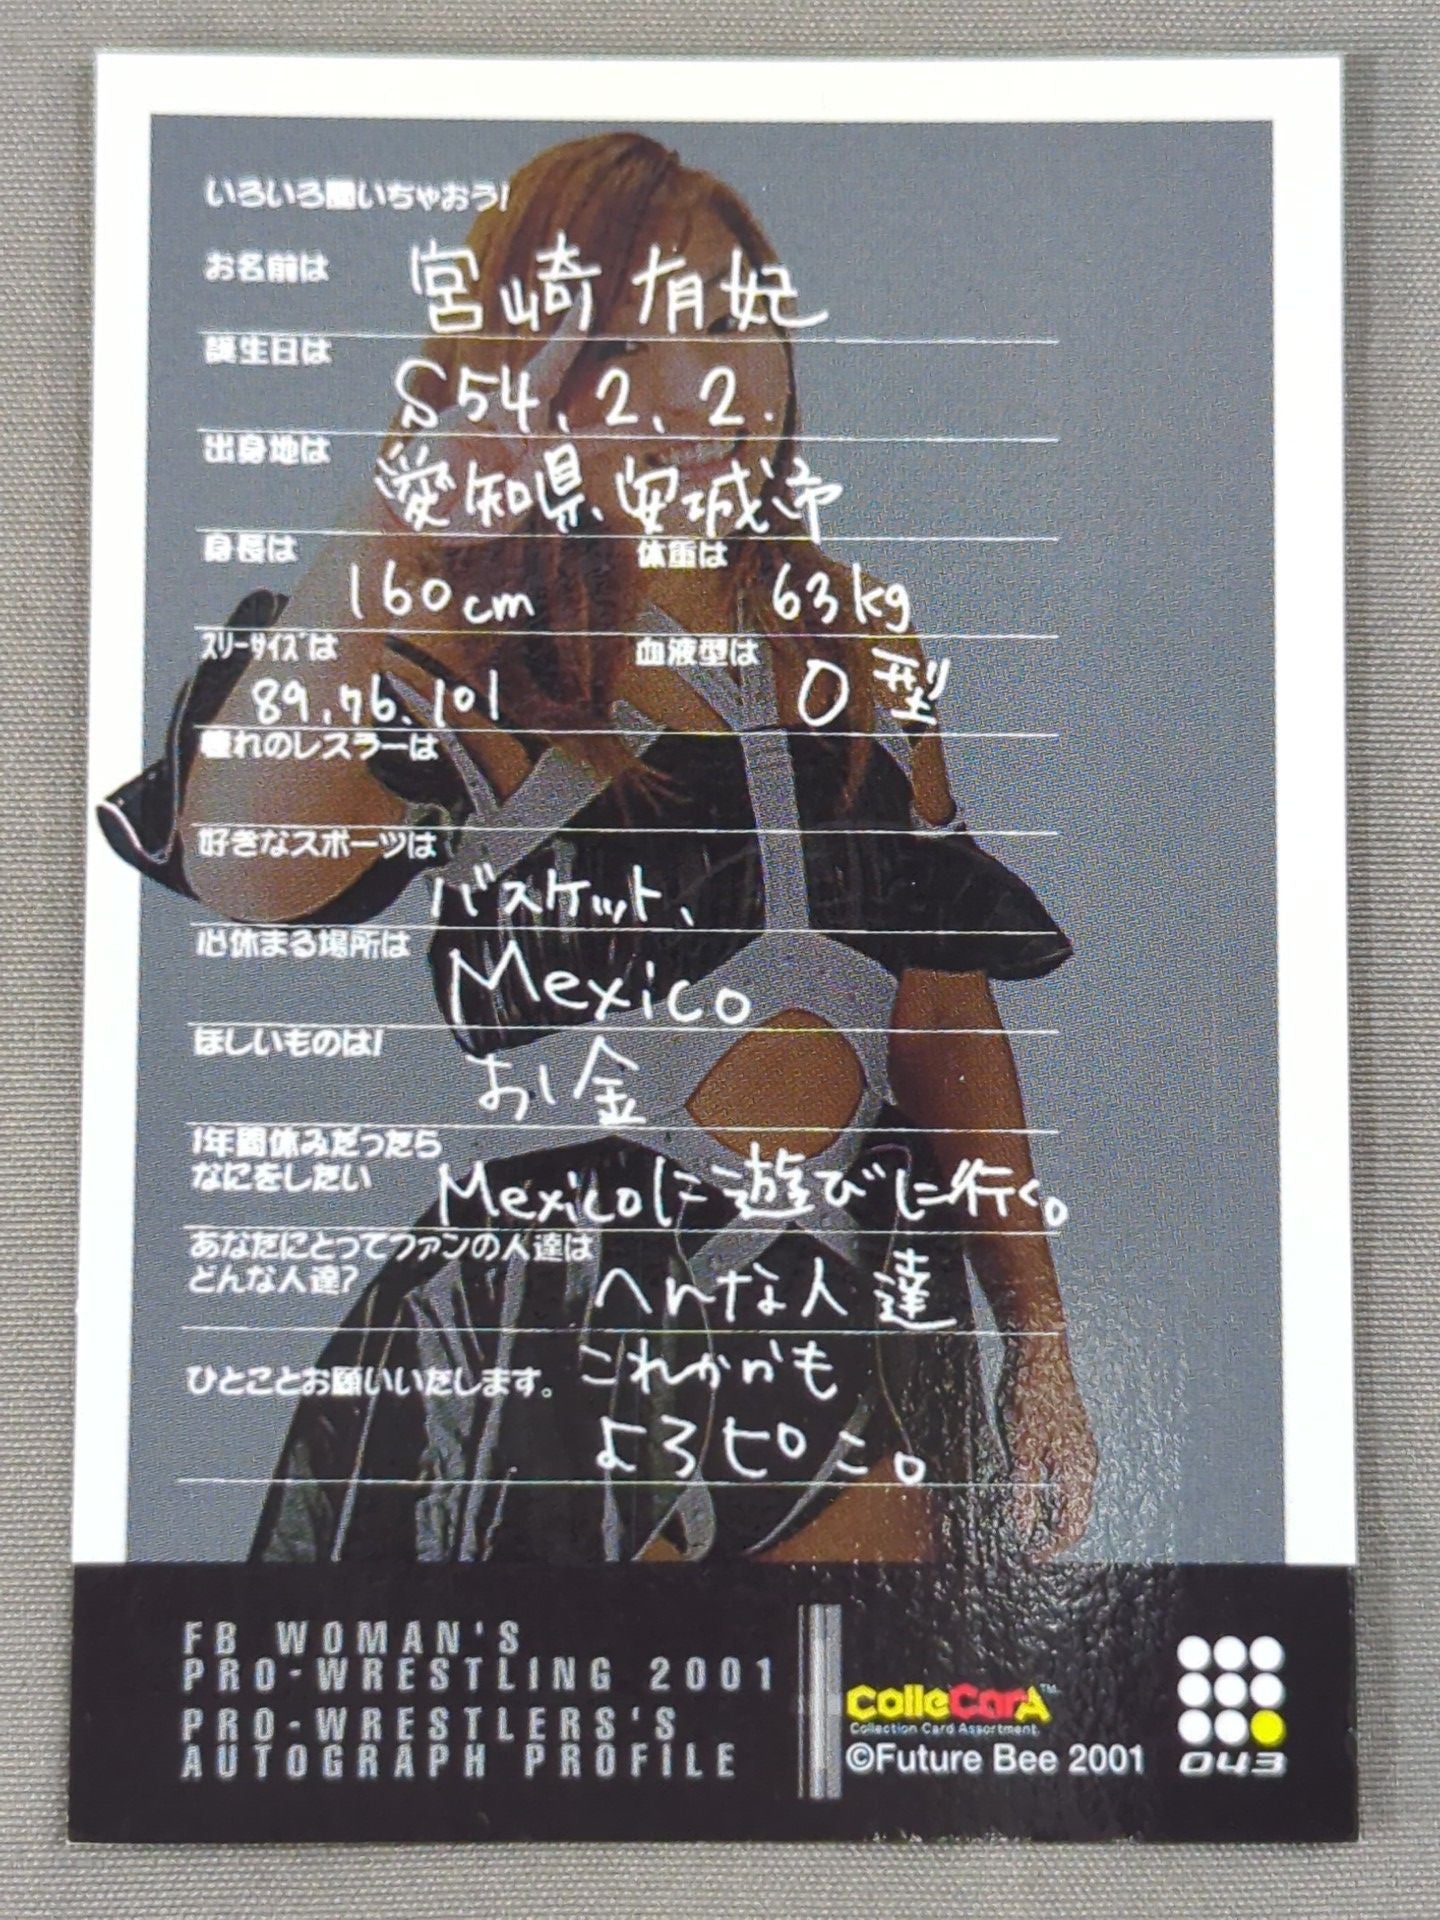 いろいろ聞いちゃおう!
お名前は 宮崎有妃
誕生日は S54.2.2.
出身地は 愛知県安城市
身長は 160cm 体重は 63kg
スリーサイズは 89.76.101 血液型は O型
憧れのレスラーは
好きなスポーツは バスケット、
心休まる場所は Mexico
ほしいものは! お金
1年間休みだったら
なにをしたい Mexicoに遊びに行く。
あなたにとってファンの人達は
どんな人達? へんな人達
ひとことお願いいたします。 これからも
よろピこ。
FB WOMAN'S
PRO-WRESTLING 2001
PRO-WRESTLERS'S
AUTOGRAPH PROFILE
colleCarA™
Collection Card Assortment
©Future Bee 2001
043